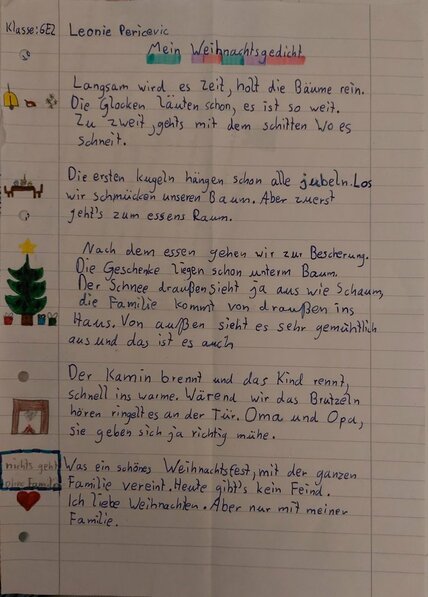 Klasse: 6E2 Leonie Pericevic
Mein Weihnachtsgedicht
Langsam wird es Zeit, holt die Bäume rein.
Die Glocken läuten schon, es ist so weit.
Zu zweit, gehts mit dem schitten Wo es
schneit.
Die ersten kugeln hängen schon alle jubeln. Los
wir schmücken unseren Baum. Aber zuerst
geht's zum essens Raum.
Nach dem essen gehen wir zur Bescherung.
Die Geschenke liegen schon unterm Baum.
Der Schnee draußen sieht ja aus wie Schaum,
die Familie kommt von draußen ins
Haus. Von außen sieht es sehr gemühtlich
aus und das ist es auch
Der Kamin brennt und das Kind rennt,
schnell ins warme. Wärend wir das Brutzeln
hören ringelt es an der Tür. Oma und Opa,
sie geben sich ja richtig mühe.
nichts geht
ohne Familie
Was ein schönes Weihnachtsfest, mit der ganzen
Familie vereint. Heute gibt's kein Feind.
Ich liebe Weihnachten. Aber nur mit meiner
Familie.